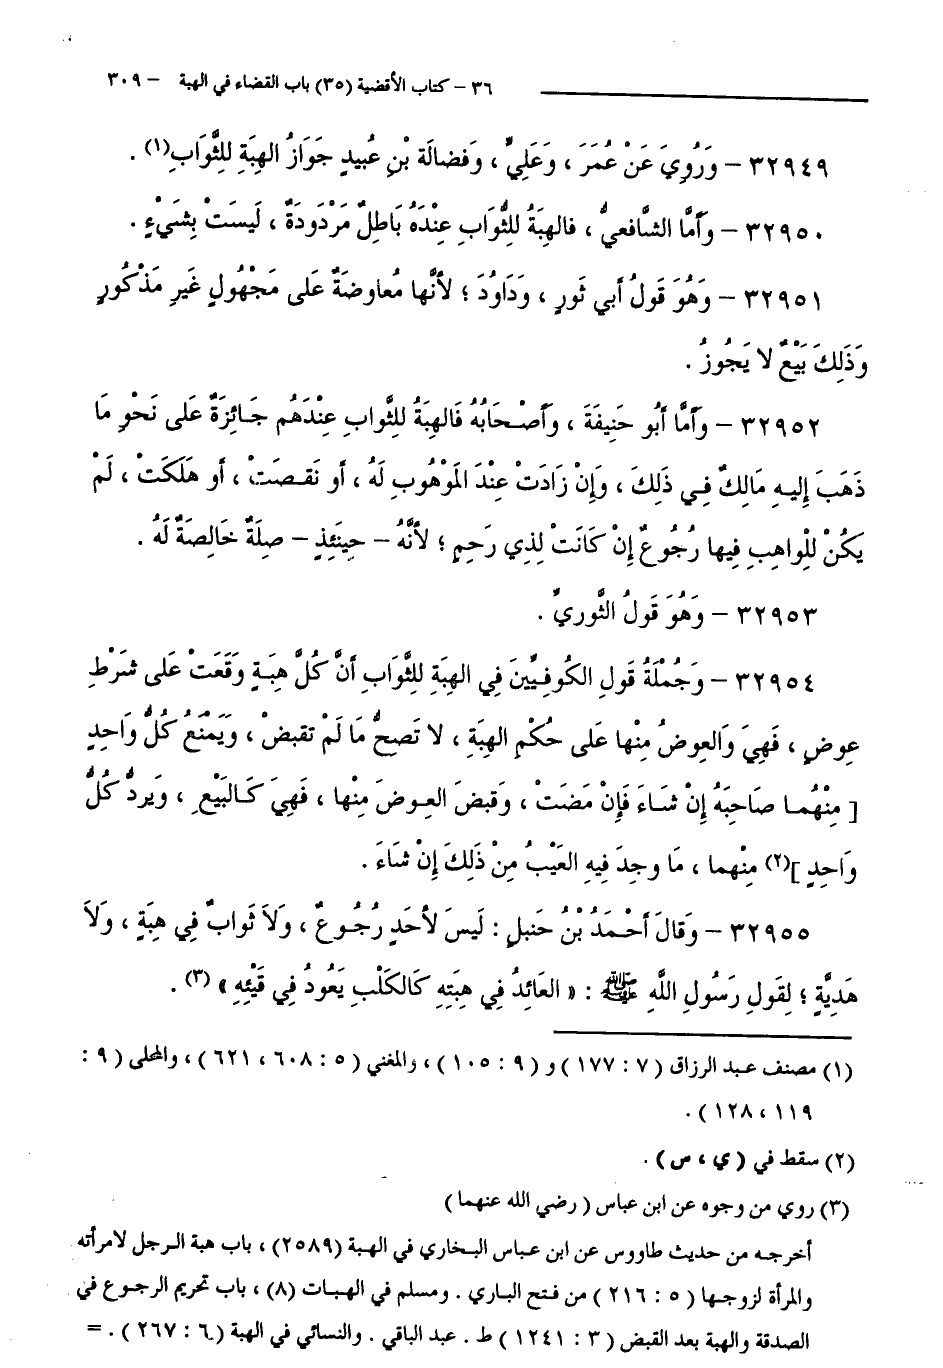 ٣٦ – كتاب الأقضية (٣٥) باب القضاء في الهبة – ٣٠٩
٣٢٩٤٩ – وَرُوِيَ عَنْ عُمَرَ ، وَعَلِيٍّ ، وَفضالَة بْنِ عُبيدٍ جَوَازُ الهِبَةِ لِلثَّوَابِ(١) .
٣٢٩٥٠ – وأَمَّا الشَّافعيُّ ، فالهِبَةُ للثَّوَابِ عِنْدَهُ بَاطِلٌ مَرْدُودَةٌ ، لَيسَتْ بِشَيْءٍ .
٣٢٩٥١ – وهُوَ قَولُ أَبي ثَورٍ ، وَدَاوُدَ ؛ لأَنَّها مُعاوضَةٌ عَلى مَجْهُولٍ غَيرِ مَذْكُورٍ
وَذَلِكَ بَيْعٌ لا يَجُوزُ .
٣٢٩٥٢ – وأَمَّا أَبُو حَنِيفَةَ ، وَأَصْحَابُهُ فَالهِبَةُ للثَّوابِ عِنْدَهُم جَائِزَةٌ عَلى نَحْوِ مَا
ذَهَبَ إِليهِ مَالِكٌ فِي ذَلِكَ ، وَإِنْ زَادَتْ عِنْدَ المَوْهُوبِ لَهُ ، أَو نَقصَتْ ، أَو هَلَكَتْ ، لَمْ
يكُنْ لِلْواهِبِ فِيها رُجُوعٌ إِنْ كَانَتْ لِذِي رَحِمٍ ؛ لأَنَّهُ – حِينَئِذٍ – صِلَةٌ خَالِصَةٌ لَهُ .
٣٢٩٥٣ – وَهُوَ قَولُ الثَّوريِّ .
٣٢٩٥٤ – وَجُمْلَةُ قَولِ الكُوفِيِّينَ فِي الهِبَةِ لِلثَّوَابِ أَنَّ كُلَّ هِبَةٍ وقَعَتْ عَلى شَرْطِ
عِوضٍ ، فَهِيَ وَالعِوضُ مِنْها عَلى حُكْمِ الهِبَةِ ، لا تَصحُّ مَا لَمْ تقبضْ ، وَيَمْنَعُ كُلُّ وَاحِدٍ
[ مِنْهُمـا صَاحِبَهُ إِنْ شَاءَ فَإِنْ مَضَتْ ، وَقبضَ العِوضَ مِنْها ، فَهِيَ كَالبَيْعِ ، وَيردُّ كُلُّ
وَاحِدٍ ](٢) مِنْهما ، مَا وجِدَ فِيهِ العَيْبُ مِنْ ذَلِكَ إِنْ شَاءَ .
٣٢٩٥٥ – وَقالَ أَحْمَدُ بْنُ حَنبلٍ : لَيسَ لأَحَدٍ رُجُوعٌ ، وَلاَ ثَوابٌ فِي هِبَةٍ ، وَلاَ
هَدِيَّةٍ ؛ لِقَولِ رَسُولِ اللَّهِ ﷺ : « العَائِدُ فِي هِبَتِهِ كَالكَلْبِ يَعُودُ فِي قَيْئِهِ » (٣) .
(١) مصنف عبد الرزاق ( ٧ : ١٧٧ ) و ( ٩ : ١٠٥ ) ، والمغني ( ٥ : ٦٠٨ ، ٦٢١ ) ، والمحلى ( ٩ :
١١٩ ، ١٢٨ ) .
(٢) سقط في ( ي ، س ) .
(٣) روي من وجوه عن ابن عباس ( رضي الله عنهما )
أخرجه من حديث طاووس عن ابن عباس البخاري في الهبة (٢٥٨٩) ، باب هبة الرجل لامرأته
والمرأة لزوجها ( ٥ : ٢١٦ ) من فتح الباري . ومسلم في الهبات (٨) ، باب تحريم الرجوع في
الصدقة والهبة بعد القبض ( ٣ : ١٢٤١ ) ط . عبد الباقي . والنسائي في الهبة ( ٦ : ٢٦٧ ) . =